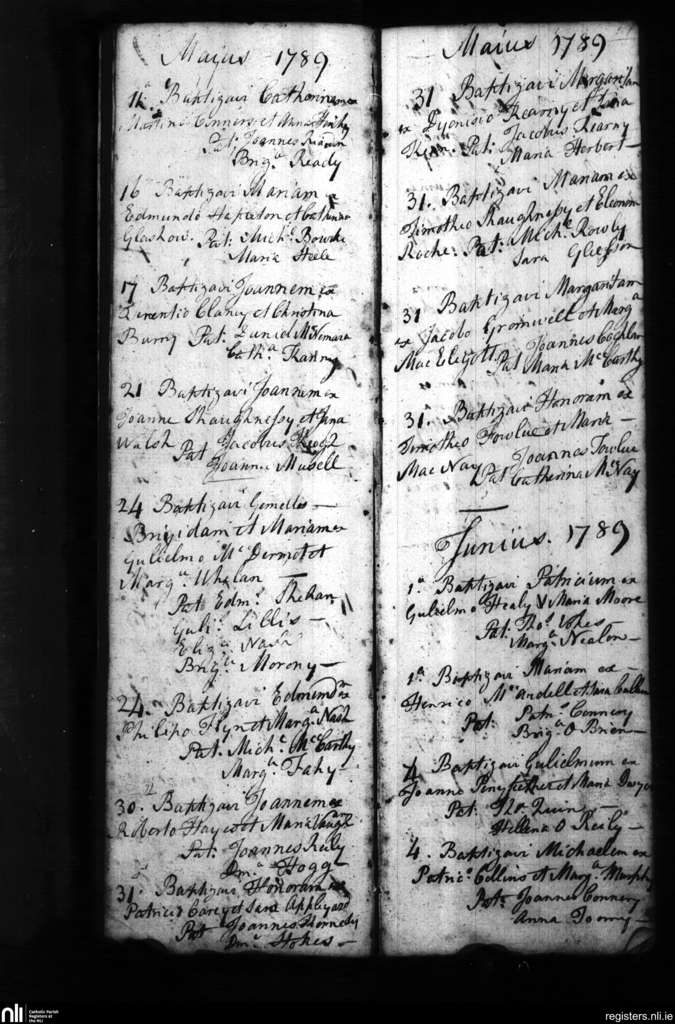 Majus 1789
11a Baptizavi Catharinam ex
Martino Conners et Anna
Pat. Joannes
Brig.a Ready
16 Baptizavi Mariam
Edmundo Stapleton et Catherina
Glashow. Pat. Mich.l Bourke
Maria Steele
17 Baptizavi Joannem ex
Laurentio Clancy et Christina
Burry Pat. Daniel McNemara
Cath.a
21 Baptizavi Joannem ex
Joanne Shaughnessy et Anna
Walsh Pat Jacobus
Joanna Mussell
24 Baptizavi Gemelles —
Brigidam et Mariam ex
Gulielmo Mc Dermot et
Marg.a Whelan —
Pat. Edm.d Phelan
Guli. Lillis —
Eliz.a Nash
Brig.a Morony —
24. Baptizavi Edmundm ex
Philipo Flyn et Marg.a Nash
Pat. Mich.l McCarthy
Marg.a Fahy —
30. Baptizavi Joannem ex
Roberto Hayes et Maria
Pat. Joannes Reily
Hogg
31. Baptizavi Honoram ex
Patricio Carey et Sara Appleyard
Pat Joannes
Stokes —
Maius 1789
31 Baptizavi Margaritam
ex Dyonisio Kearny et
Pat. Jacobus Kearny
Maria Herbert —
31. Baptizavi Mariam ex
Timotheo Shaughnessy et Eleonora
Roche. Pat. Mich.l Rowly
Sara Gleeson
31 Baptizavi Margaritam
ex Jacobo Gromwell et Marg.a
Mac Elegott Pat Joannes Coghlan
Maria McCarthy
31. Baptizavi Honoram ex
Timotheo Fowlue et Maria —
Mac Nay Joannes Fowlue
Pat Catherina McNay
Junius. 1789
1a Baptizavi Patricium ex
Gulielmo Healy & Maria Moore
Pat. Tho.s Vokes
Marg.a Nealon —
1a Baptizavi Mariam ex —
Henrico McArdell et Sara
Pat. Patri.s Connery
Brig.a O Brien —
4. Baptizavi Gulielmum ex
Joanne Penyfether et Maria Dwyer
Pat. Tho. Quin —
Hellena O Reily —
4. Baptizavi Michaelem ex
Patric.o Collins et Marg.a Murphy
Pat. Joannes Connery
Anna Toomy —
nli
Catholic Parish
Registers at
the NLI
registers.nli.ie